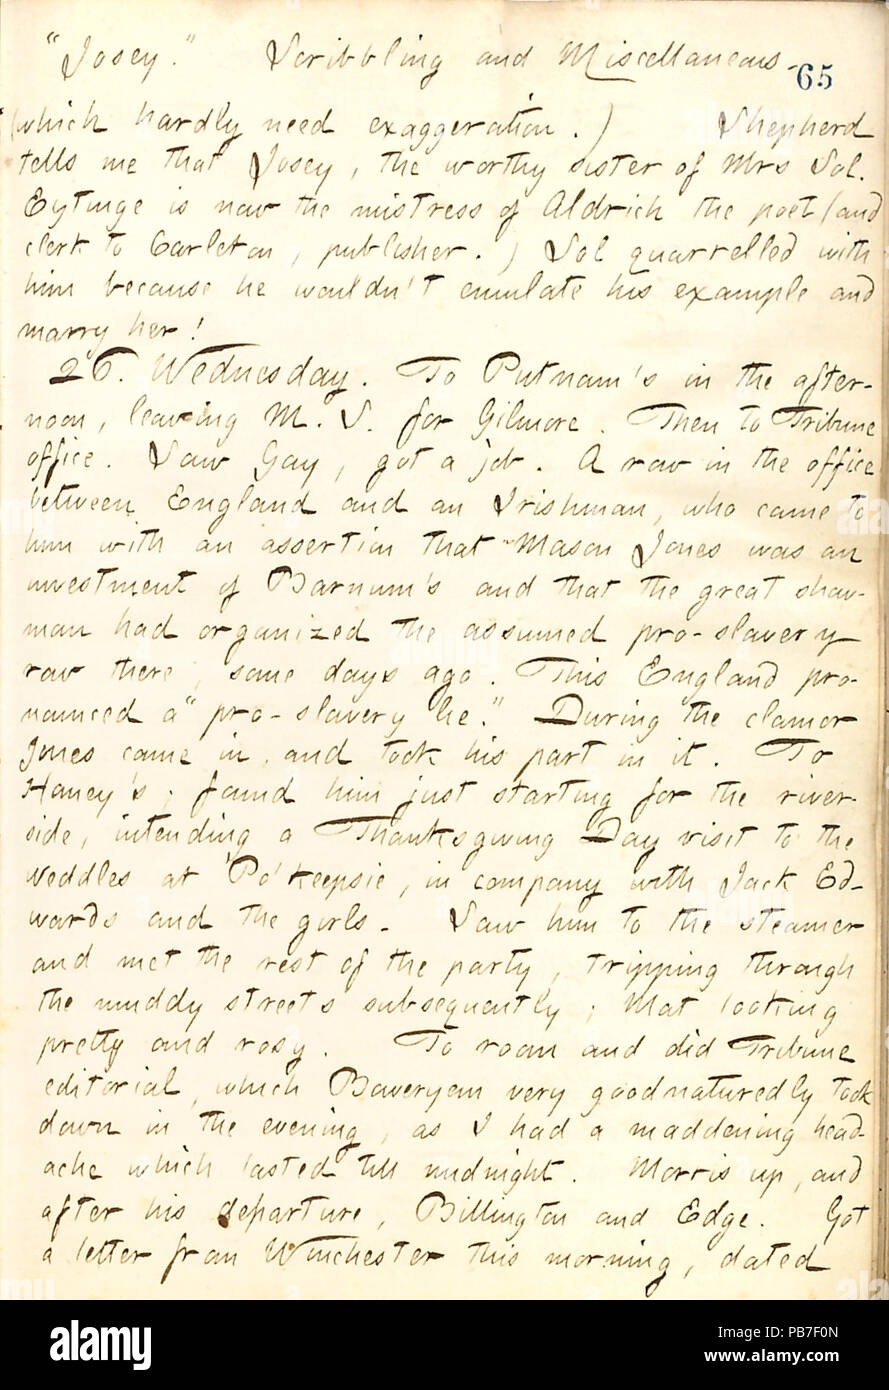 "Josey." Scribbling and Miscellaneous.
65
(which hardly need exaggeration.) Shepherd
tells me that Josey, the worthy sister of Mrs Sol.
Eytinge is now the mistress of Aldrich the poet (and
clerk to Carleton, publisher.) Sol quarrelled with
him because he wouldn't emulate his example and
marry her!
26. Wednesday. To Putnam's in the after-
noon, leaving M. S. for Gilmore. Then to Tribune
office. Saw Gay, got a job. A row in the office
between England and an Irishman, who came to
him with an assertion that Mason Jones was an
investment of Barnum's and that the great show-
man had organized the assumed pro-slavery
row there, some days ago. This England pro-
nounced a "pro-slavery lie." During the clamor
Jones came in, and took his part in it. To
Haney's; found him just starting for the river-
side, intending a Thanksgiving Day visit to the
Weddles at 'Po'keepsie, in company with Jack Ed-
wards and the girls. Saw him to the steamer
and met the rest of the party, tripping through
the muddy streets subsequently; Mat looking
pretty and rosy. To room and did Tribune
editorial, which Boweryem very goodnaturedly took
down in the evening, as I had a maddening head-
ache which lasted till midnight. Morris up, and
after his departure, Billington and Edge. Got
a letter from Winchester this morning, dated
alamy
Image ID: PB7F0N
www.alamy.com